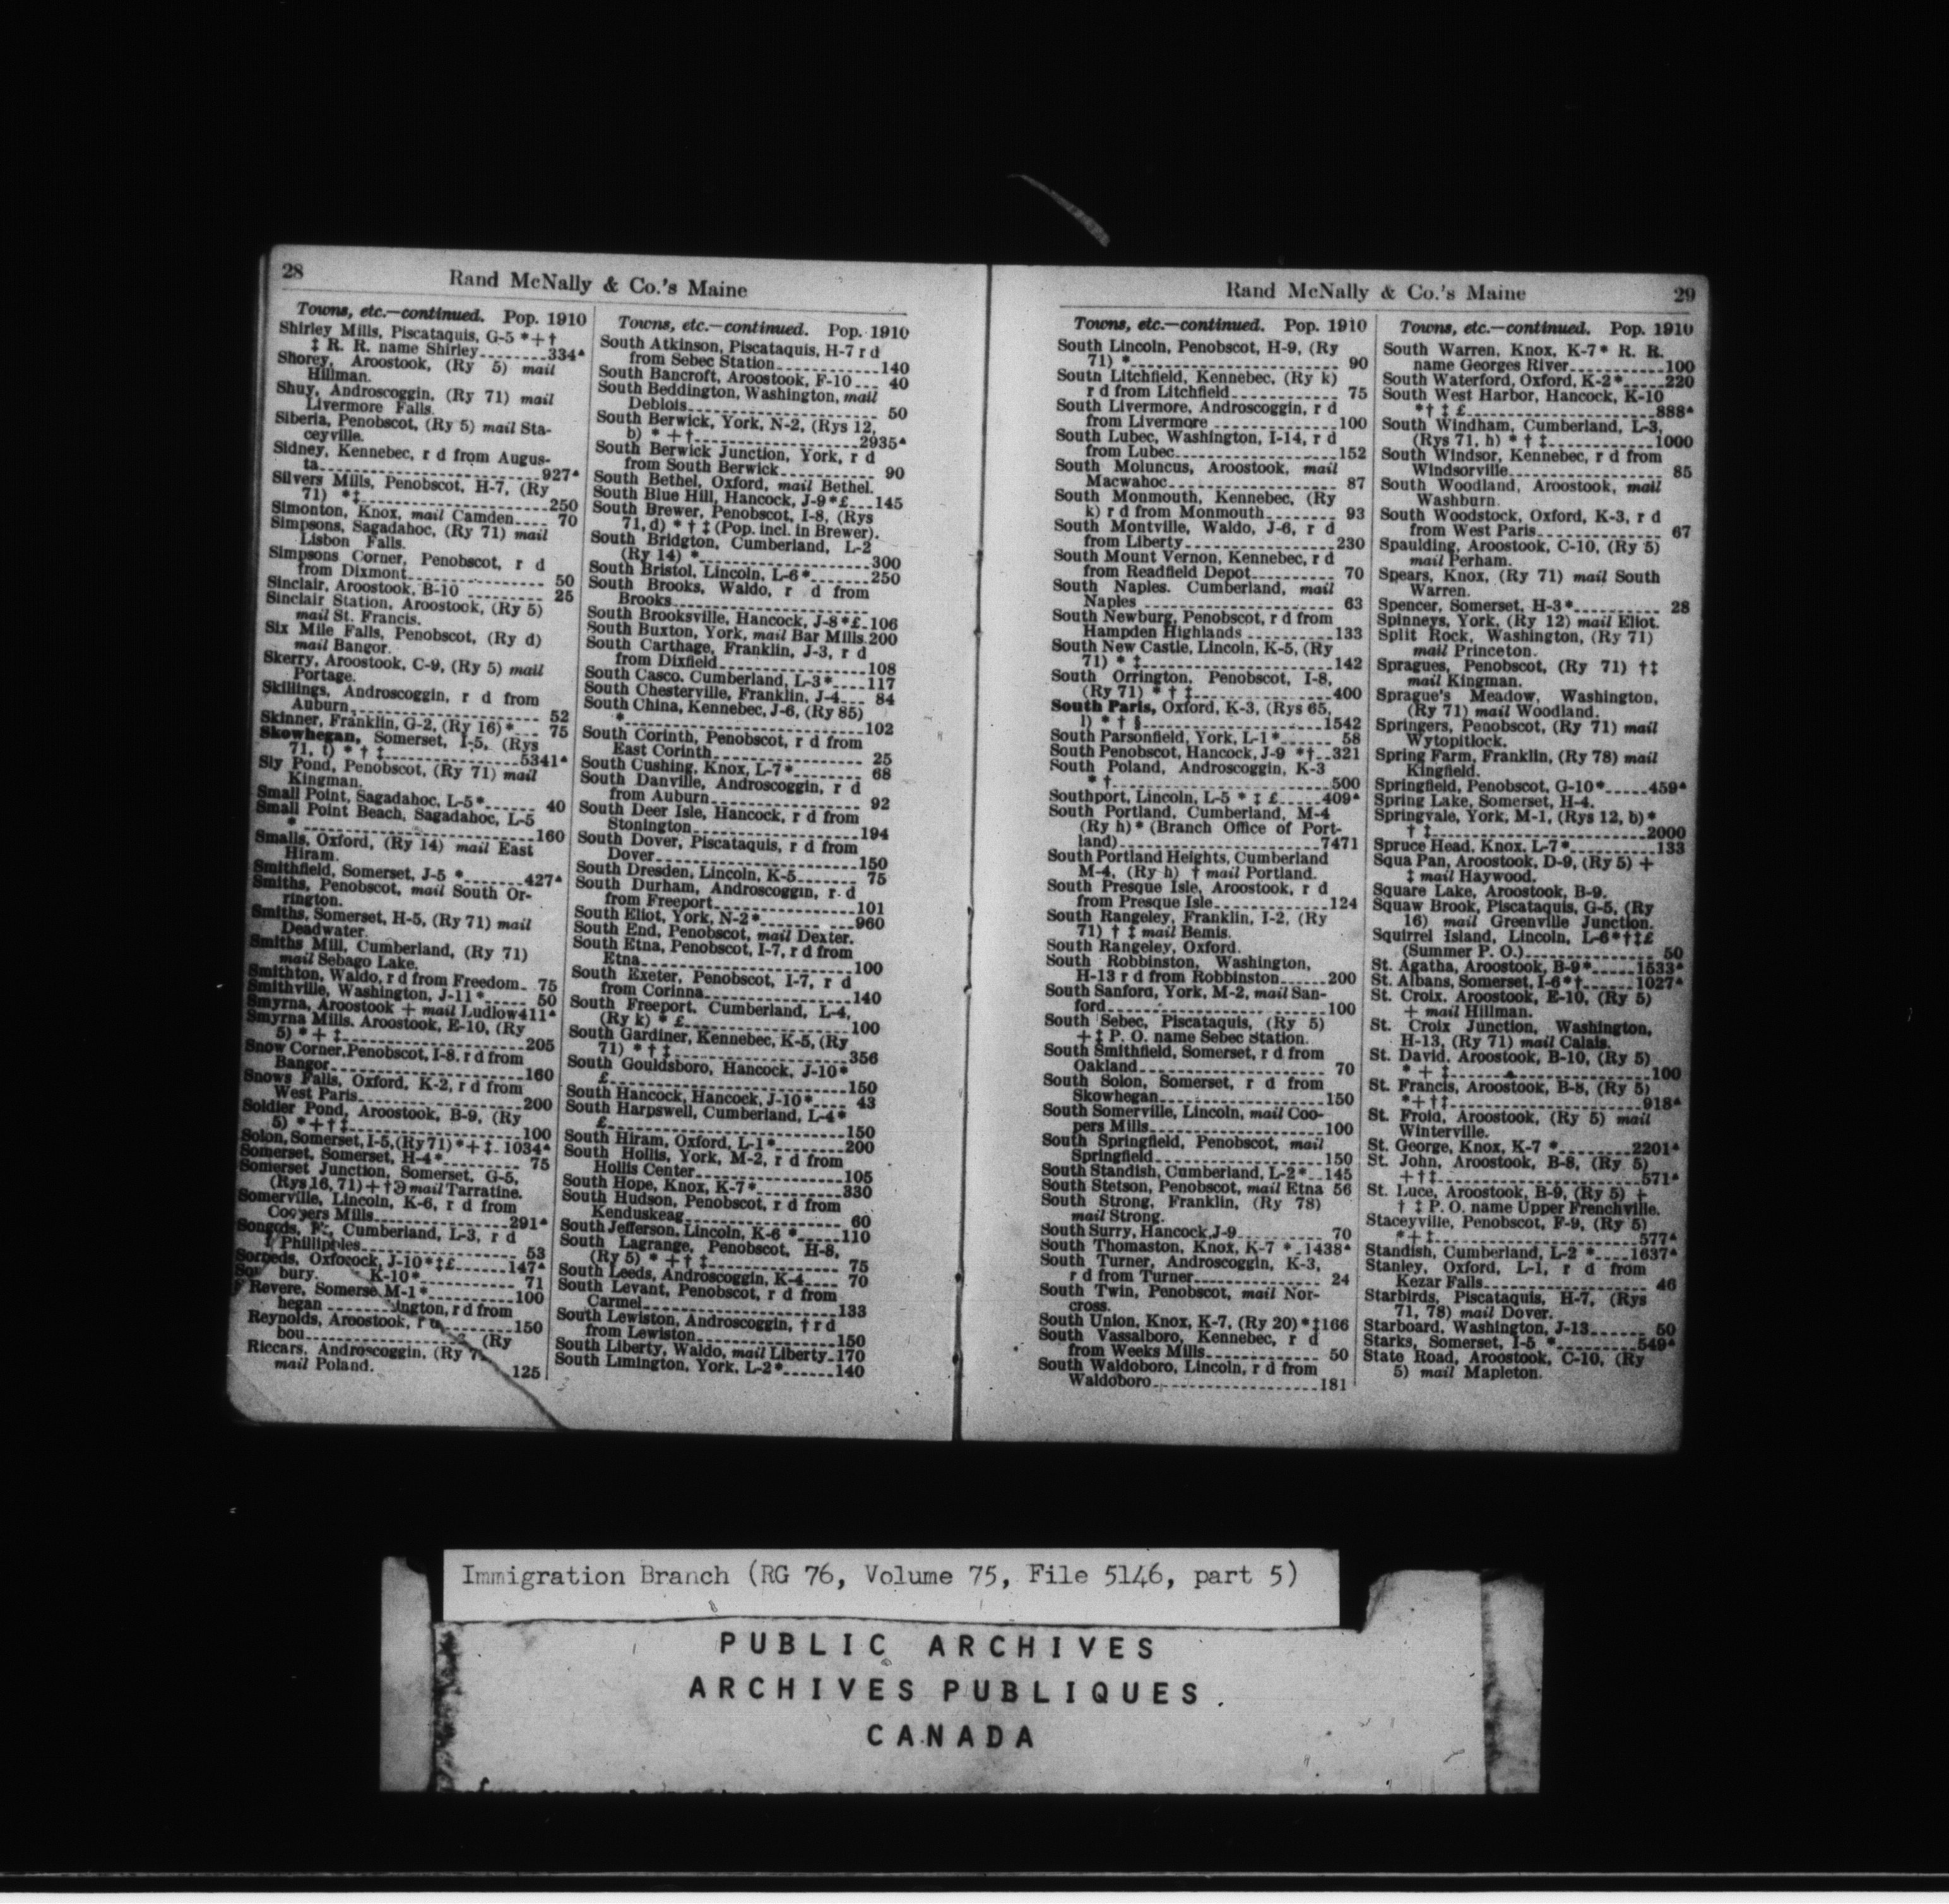 28
Rand McNally & Co.'s Maine
Towns, etc.—continued. Pop. 1910
Shirley Mills, Piscataquis, G-5 *+†
‡ R. R. name Shirley........334▲
Shorey, Aroostook, (Ry 5) mail
Hillman.
Shuy, Androscoggin, (Ry 71) mail
Livermore Falls.
Siberia, Penobscot, (Ry 5) mail Sta-
ceyville.
Sidney, Kennebec, r d from Augus-
ta........927▲
Silvers Mills, Penobscot, H-7, (Ry
71) *‡........250
Simonton, Knox, mail Camden.... 70
Simpsons, Sagadahoc, (Ry 71) mail
Lisbon Falls.
Simpsons Corner, Penobscot, r d
from Dixmont........ 50
Sinclair, Aroostook, B-10 ........ 25
Sinclair Station, Aroostook, (Ry 5)
mail St. Francis.
Six Mile Falls, Penobscot, (Ry d)
mail Bangor.
Skerry, Aroostook, C-9, (Ry 5) mail
Portage.
Skillings, Androscoggin, r d from
Auburn........ 52
Skinner, Franklin, G-2, (Ry 16)*.... 75
Skowhegan, Somerset, I-5, (Rys
71, t) * † ‡........5341▲
Sly Pond, Penobscot, (Ry 71) mail
Kingman.
Small Point, Sagadahoc, L-5*...... 40
Small Point Beach, Sagadahoc, L-5
*........160
Smalls, Oxford, (Ry 14) mail East
Hiram.
Smithfield, Somerset, J-5 *.......427▲
Smiths, Penobscot, mail South Or-
rington.
Smiths, Somerset, H-5, (Ry 71) mail
Deadwater.
Smiths Mill, Cumberland, (Ry 71)
mail Sebago Lake.
Smithton, Waldo, r d from Freedom. 75
Smithville, Washington, J-11*..... 50
Smyrna, Aroostook + mail Ludlow411▲
Smyrna Mills, Aroostook, E-10, (Ry
5) *+‡........205
Snow Corner, Penobscot, I-8, r d from
Bangor........160
Snows Falls, Oxford, K-2, r d from
West Paris........200
Soldier Pond, Aroostook, B-9, (Ry
5) *+†‡........100
Solon, Somerset, I-5, (Ry 71) *+‡. 1034▲
Somerset, Somerset, H-4*........ 75
Somerset Junction, Somerset, G-5,
(Rys 16, 71) + † mail Tarratine.
Somerville, Lincoln, K-6, r d from
Coopers Mills........291▲
Cumberland, L-3, r d
53
J-10*‡£......147▲
bury. K-10*........ 71
Revere, Somerse M-1*........100
hegan ........ington, r d from
Reynolds, Aroostook, 150
bou........ (Ry
Riccars, Androscoggin, (Ry
mail Poland. 125
Towns, etc.—continued. Pop. 1910
South Atkinson, Piscataquis, H-7 r d
from Sebec Station........140
South Bancroft, Aroostook, F-10... 40
South Beddington, Washington, mail
Deblois........ 50
South Berwick, York, N-2, (Rys 12,
b) * +†........2935▲
South Berwick Junction, York, r d
from South Berwick........ 90
South Bethel, Oxford, mail Bethel.
South Blue Hill, Hancock, J-9*£...145
South Brewer, Penobscot, I-8, (Rys
71, d) * † ‡ (Pop. incl. in Brewer).
South Bridgton, Cumberland, L-2
(Ry 14) *........300
South Bristol, Lincoln, L-6*.......250
South Brooks, Waldo, r d from
Brooks........
South Brooksville, Hancock, J-8*£.106
South Buxton, York, mail Bar Mills.200
South Carthage, Franklin, J-3, r d
from Dixfield........108
South Casco, Cumberland, L-3*....117
South Chesterville, Franklin, J-4... 84
South China, Kennebec, J-6, (Ry 85)
*........102
South Corinth, Penobscot, r d from
East Corinth........ 25
South Cushing, Knox, L-7*........ 68
South Danville, Androscoggin, r d
from Auburn........ 92
South Deer Isle, Hancock, r d from
Stonington........194
South Dover, Piscataquis, r d from
Dover........150
South Dresden, Lincoln, K-5....... 75
South Durham, Androscoggin, r d
from Freeport........101
South Eliot, York, N-2*........960
South End, Penobscot, mail Dexter.
South Etna, Penobscot, I-7, r d from
Etna........100
South Exeter, Penobscot, I-7, r d
from Corinna........140
South Freeport, Cumberland, L-4,
(Ry k) * £........100
South Gardiner, Kennebec, K-5, (Ry
71) * † ‡........356
South Gouldsboro, Hancock, J-10*
£........150
South Hancock, Hancock, J-10*.... 43
South Harpswell, Cumberland, L-4*
£........150
South Hiram, Oxford, L-1*........200
South Hollis, York, M-2, r d from
Hollis Center........105
South Hope, Knox, K-7*........330
South Hudson, Penobscot, r d from
Kenduskeag........ 60
South Jefferson, Lincoln, K-6 *.....110
South Lagrange, Penobscot, H-8,
(Ry 5) * +† ‡........ 75
South Leeds, Androscoggin, K-4.... 70
South Levant, Penobscot, r d from
Carmel........133
South Lewiston, Androscoggin, † r d
from Lewiston........150
South Liberty, Waldo, mail Liberty.170
South Limington, York, L-2*......140
Rand McNally & Co.'s Maine
29
Towns, etc.—continued. Pop. 1910
South Lincoln, Penobscot, H-9, (Ry
71) *........ 90
South Litchfield, Kennebec, (Ry k)
r d from Litchfield........ 75
South Livermore, Androscoggin, r d
from Livermore........100
South Lubec, Washington, I-14, r d
from Lubec........152
South Moluncus, Aroostook, mail
Macwahoc........ 87
South Monmouth, Kennebec, (Ry
k) r d from Monmouth........ 93
South Montville, Waldo, J-6, r d
from Liberty........230
South Mount Vernon, Kennebec, r d
from Readfield Depot........ 70
South Naples, Cumberland, mail
Naples ........ 63
South Newburg, Penobscot, r d from
Hampden Highlands ........133
South New Castle, Lincoln, K-5, (Ry
71) * ‡........142
South Orrington, Penobscot, I-8,
(Ry 71) * † ‡........400
South Paris, Oxford, K-3, (Rys 65,
l) * † §........1542
South Parsonfield, York, L-1*...... 58
South Penobscot, Hancock, J-9 *†..321
South Poland, Androscoggin, K-3
* †........500
Southport, Lincoln, L-5 * ‡ £.....409▲
South Portland, Cumberland, M-4
(Ry h)* (Branch Office of Port-
land)........7471
South Portland Heights, Cumberland
M-4, (Ry h) † mail Portland.
South Presque Isle, Aroostook, r d
from Presque Isle........124
South Rangeley, Franklin, I-2, (Ry
71) † ‡ mail Bemis.
South Rangeley, Oxford.
South Robbinston, Washington,
H-13 r d from Robbinston......200
South Sanford, York, M-2, mail San-
ford........100
South Sebec, Piscataquis, (Ry 5)
+‡ P. O. name Sebec Station.
South Smithfield, Somerset, r d from
Oakland........ 70
South Solon, Somerset, r d from
Skowhegan........150
South Somerville, Lincoln, mail Coo-
pers Mills........100
South Springfield, Penobscot, mail
Springfield........150
South Standish, Cumberland, L-2*..145
South Stetson, Penobscot, mail Etna 56
South Strong, Franklin, (Ry 78)
mail Strong.
South Surry, Hancock, J-9........ 70
South Thomaston, Knox, K-7 *.1438▲
South Turner, Androscoggin, K-3,
r d from Turner........ 24
South Twin, Penobscot, mail Nor-
cross.
South Union, Knox, K-7, (Ry 20)*‡166
South Vassalboro, Kennebec, r d
from Weeks Mills........ 50
South Waldoboro, Lincoln, r d from
Waldoboro........181
Towns, etc.—continued. Pop. 1910
South Warren, Knox, K-7* R. R.
name Georges River........100
South Waterford, Oxford, K-2*.....220
South West Harbor, Hancock, K-10
*† ‡ £........888▲
South Windham, Cumberland, L-3,
(Rys 71, h) * † ‡........1000
South Windsor, Kennebec, r d from
Windsorville........ 85
South Woodland, Aroostook, mail
Washburn.
South Woodstock, Oxford, K-3, r d
from West Paris........ 67
Spaulding, Aroostook, C-10, (Ry 5)
mail Perham.
Spears, Knox, (Ry 71) mail South
Warren.
Spencer, Somerset, H-3*........ 28
Spinneys, York, (Ry 12) mail Eliot.
Split Rock, Washington, (Ry 71)
mail Princeton.
Spragues, Penobscot, (Ry 71) †‡
mail Kingman.
Sprague's Meadow, Washington,
(Ry 71) mail Woodland.
Springers, Penobscot, (Ry 71) mail
Wytopitlock.
Spring Farm, Franklin, (Ry 78) mail
Kingfield.
Springfield, Penobscot, G-10*.....459▲
Spring Lake, Somerset, H-4.
Springvale, York, M-1, (Rys 12, b)*
† ‡........2000
Spruce Head, Knox, L-7*........133
Squa Pan, Aroostook, D-9, (Ry 5) +
‡ mail Haywood.
Square Lake, Aroostook, B-9.
Squaw Brook, Piscataquis, G-5, (Ry
16) mail Greenville Junction.
Squirrel Island, Lincoln, L-6*†‡£
(Summer P. O.)........ 50
St. Agatha, Aroostook, B-9*.....1533▲
St. Albans, Somerset, I-6*†......1027▲
St. Croix, Aroostook, E-10, (Ry 5)
+ mail Hillman.
St. Croix Junction, Washington,
H-13, (Ry 71) mail Calais.
St. David, Aroostook, B-10, (Ry 5)
* + ‡........100
St. Francis, Aroostook, B-8, (Ry 5)
*+†‡........918▲
St. Froid, Aroostook, (Ry 5) mail
Winterville.
St. George, Knox, K-7 *........2201▲
St. John, Aroostook, B-8, (Ry 5)
+†‡........571▲
St. Luce, Aroostook, B-9, (Ry 5) +
† ‡ P. O. name Upper Frenchville.
Staceyville, Penobscot, F-9, (Ry 5)
*+‡........577▲
Standish, Cumberland, L-2 *....1637▲
Stanley, Oxford, L-1, r d from
Kezar Falls........ 46
Starbirds, Piscataquis, H-7, (Rys
71, 78) mail Dover.
Starboard, Washington, J-13...... 50
Starks, Somerset, I-5 *........549▲
State Road, Aroostook, C-10, (Ry
5) mail Mapleton.
Immigration Branch (RG 76, Volume 75, File 5146, part 5)
PUBLIC ARCHIVES
ARCHIVES PUBLIQUES
CANADA